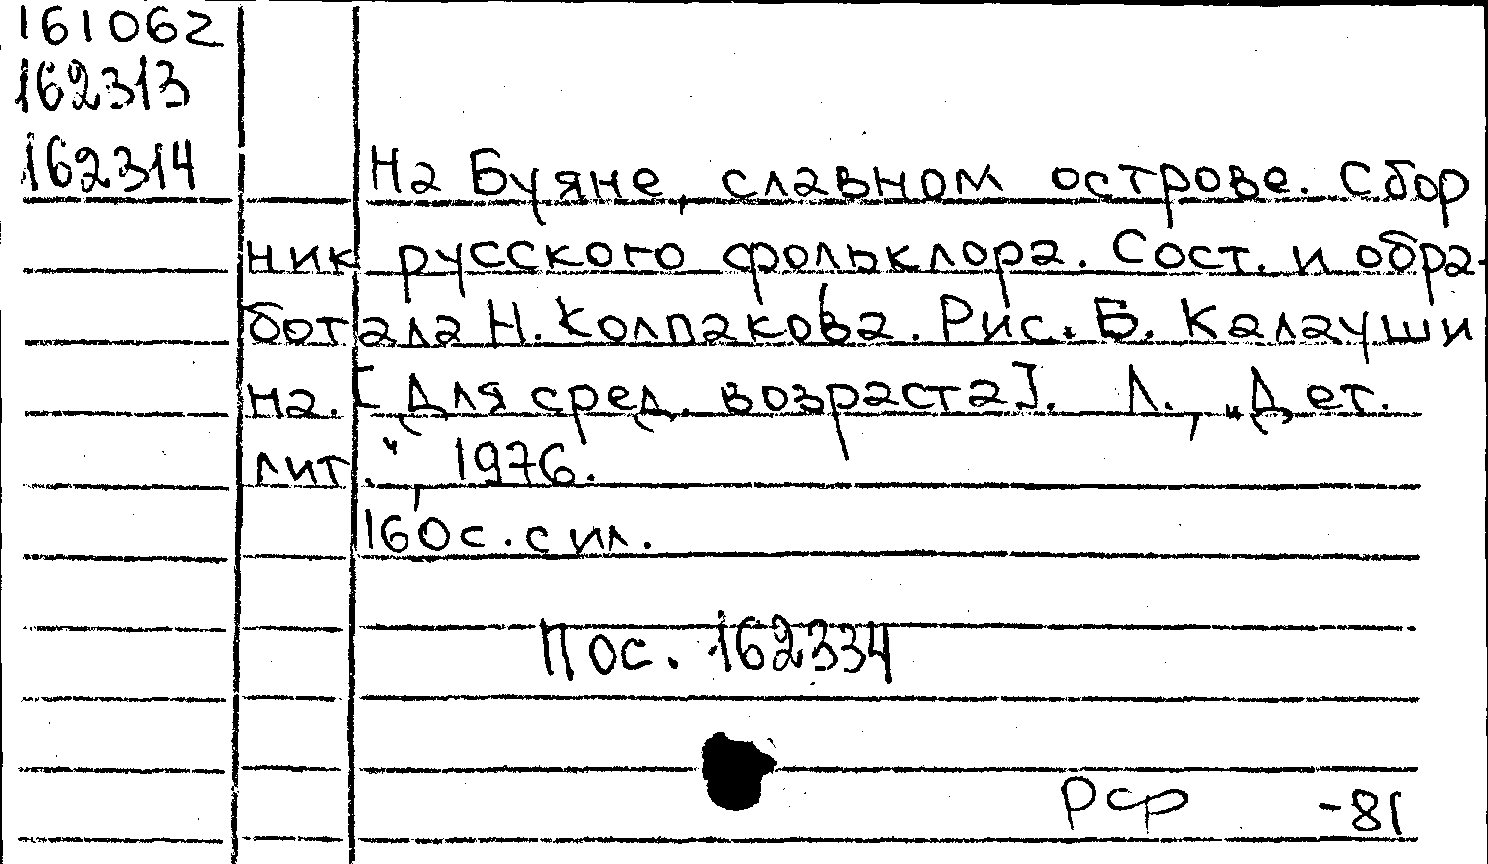 161062
162313
162314 На Буяне, славном острове. Сбор
ник русского фольклора. Сост. и обра-
ботала Н. Колпакова. Рис. Б. Калауши
на. [Для сред. возраста]. Л., „Дет.
лит.“, 1976.
160 с. с ил.
Пос. 162334
РСФ -81